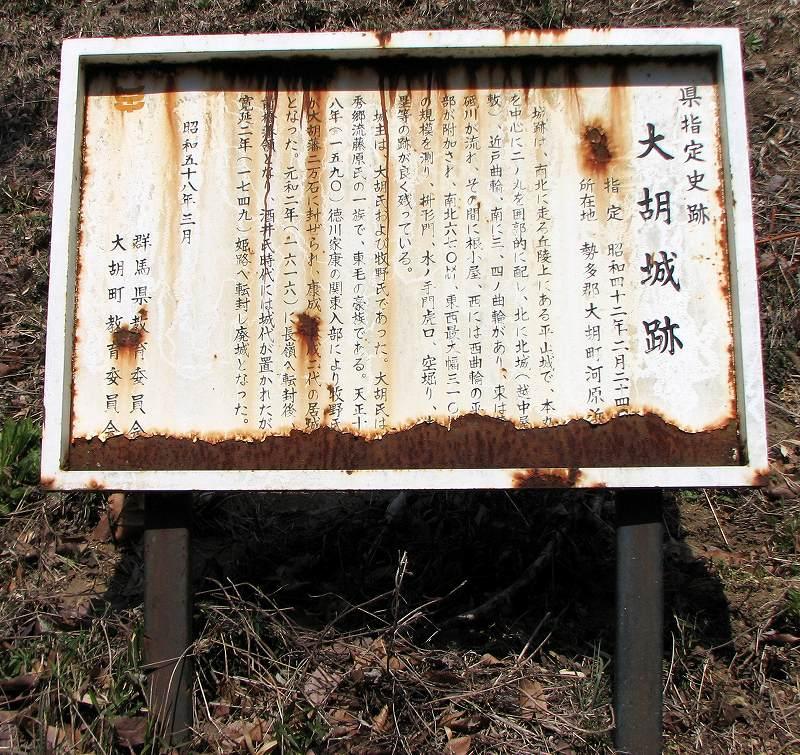 県指定史跡
大胡城跡
指定 昭和四十二年二月二十四
所在地 勢多郡大胡町河原浜
城跡は、南北に走る丘陵上にある平山城で、本丸
を中心に二ノ丸を囲郭的に配し、北に北城(越中屋
敷)、近戸曲輪、南に三、四ノ曲輪があり、東は
砥川が流れ、その間に根小屋、西には西曲輪の平
部が附加され、南北六七〇㍍、東西最大幅三一〇
の規模を測り、桝形門、水ノ手門虎口、空堀り、
塁等の跡が良く残っている。
城主は、大胡氏および牧野氏であった。大胡氏は
秀郷流藤原氏の一族で、東毛の豪族である。天正十
八年(一五九〇)徳川家康の関東入部により牧野氏
が大胡藩二万石に封ぜられ、康成、成二代の居城
となった。元和二年(一六一六)に長嶺へ転封後
前橋藩領となり、酒井氏時代には城代が置かれたが
寛延二年(一七四九)姫路へ転封し廃城となった。
昭和五十八年三月
群馬県教育委員会
大胡町教育委員会